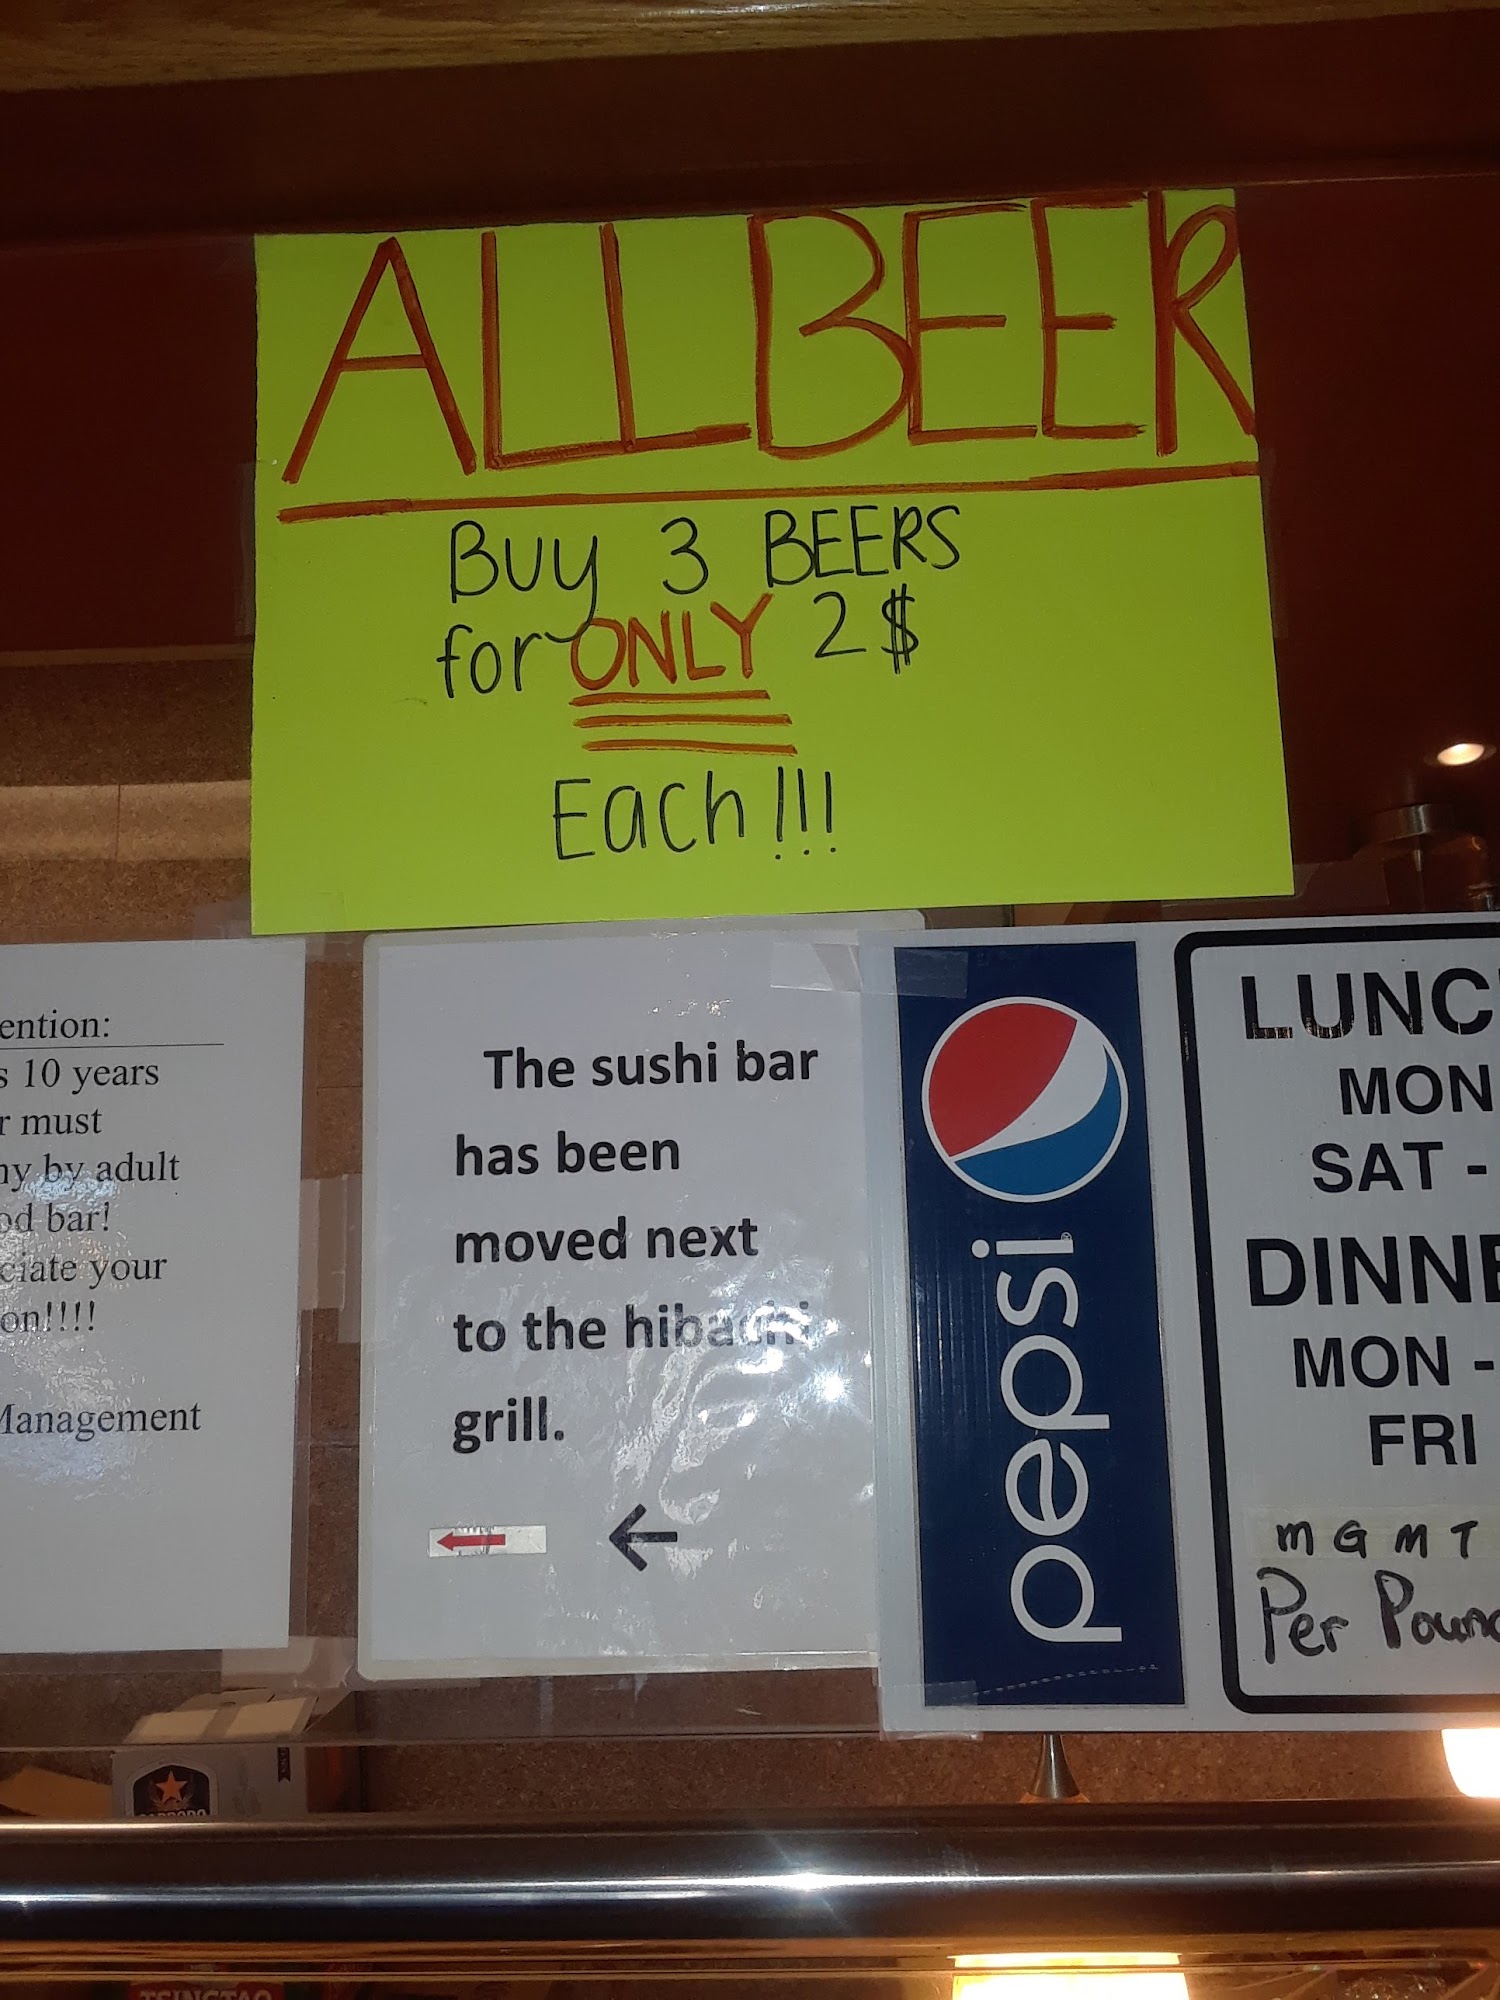 ALL BEER
Buy 3 BEERS
for ONLY 2$
Each!!!
ention:
s 10 years
r must
ny by adult
od bar!
ciate your
on!!!!
Management
The sushi bar
has been
moved next
to the hibachi
grill.
pepsi
LUNC
MON
SAT -
DINNE
MON -
FRI
MGMT
Per Poun
SAPPORO
TSINGTAO